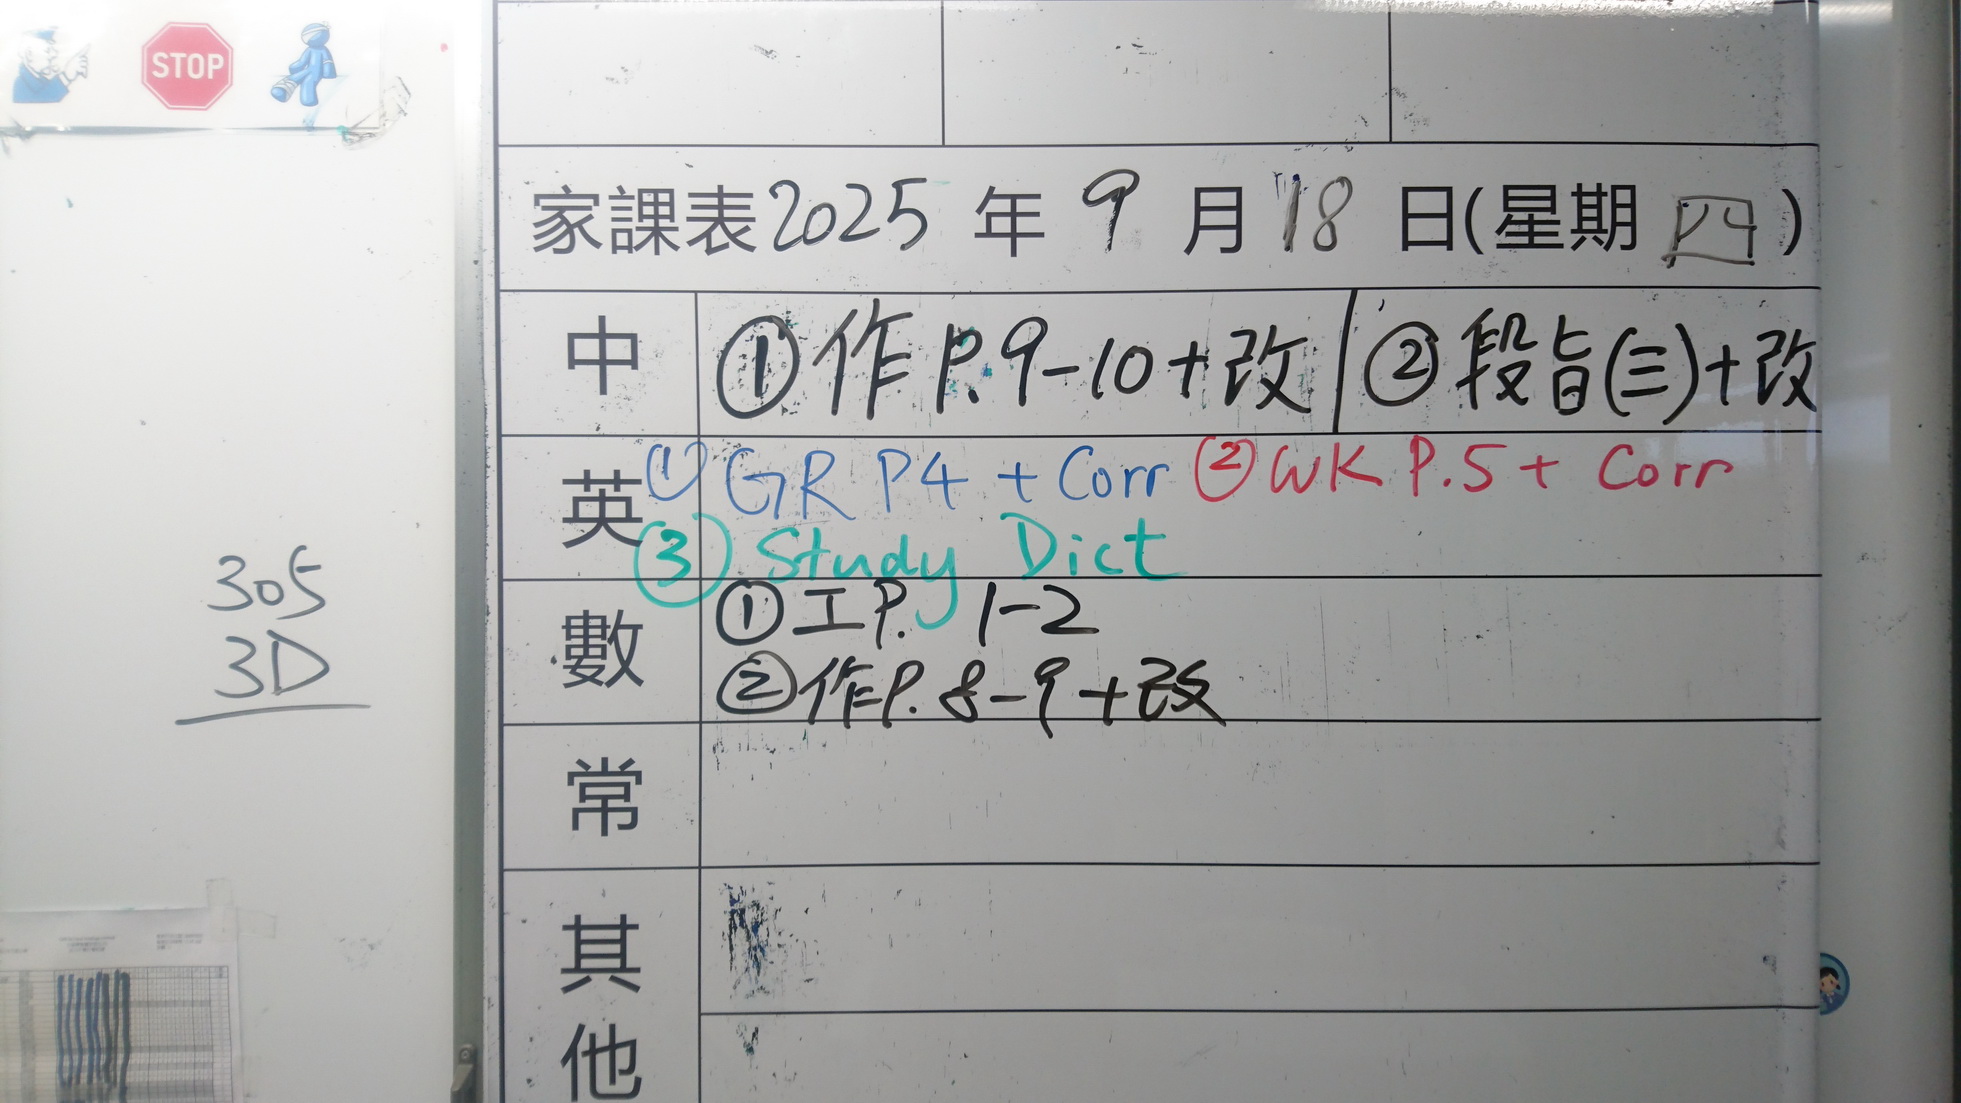 STOP
家課表2025年9月18日(星期四)
中 ①作P.9-10+改 ②段旨(三)+改
英 ①GR P4 + Corr ②WK P.5 + Corr
③ Study Dict
數 ①工P. 1-2
②作P.8-9+改
常
其他
305
3D